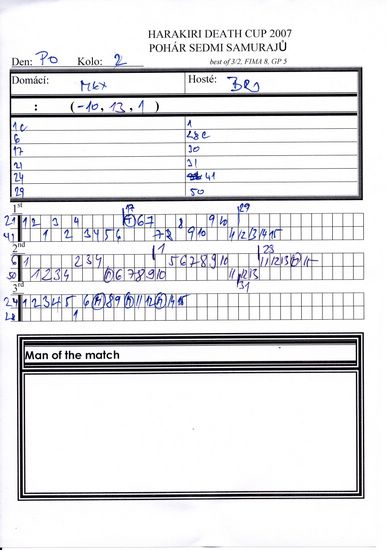 HARAKIRI DEATH CUP 2007
POHÁR SEDMI SAMURAJŮ
Den: PO Kolo: 2 best of 3/2, FIMA 8, GP 5
Domácí: Hosté:
: (-10, 13, 1)
1c 1
6 28c
17 30
21 31
24 41
29 50
1st
17 29
21 1 2 3 4 6 7 8 9 10
41 1 2 3 4 5 6 7 8 9 10 11 12 13 14 15
2nd
1 23
6 1 2 3 4 5 6 7 8 9 10 11 12 13 15
50 1 2 3 4 6 7 8 9 10 11 12 13
31
3rd
24 1 2 3 4 5 6 8 9 11 12 14 15
28 1
Man of the match